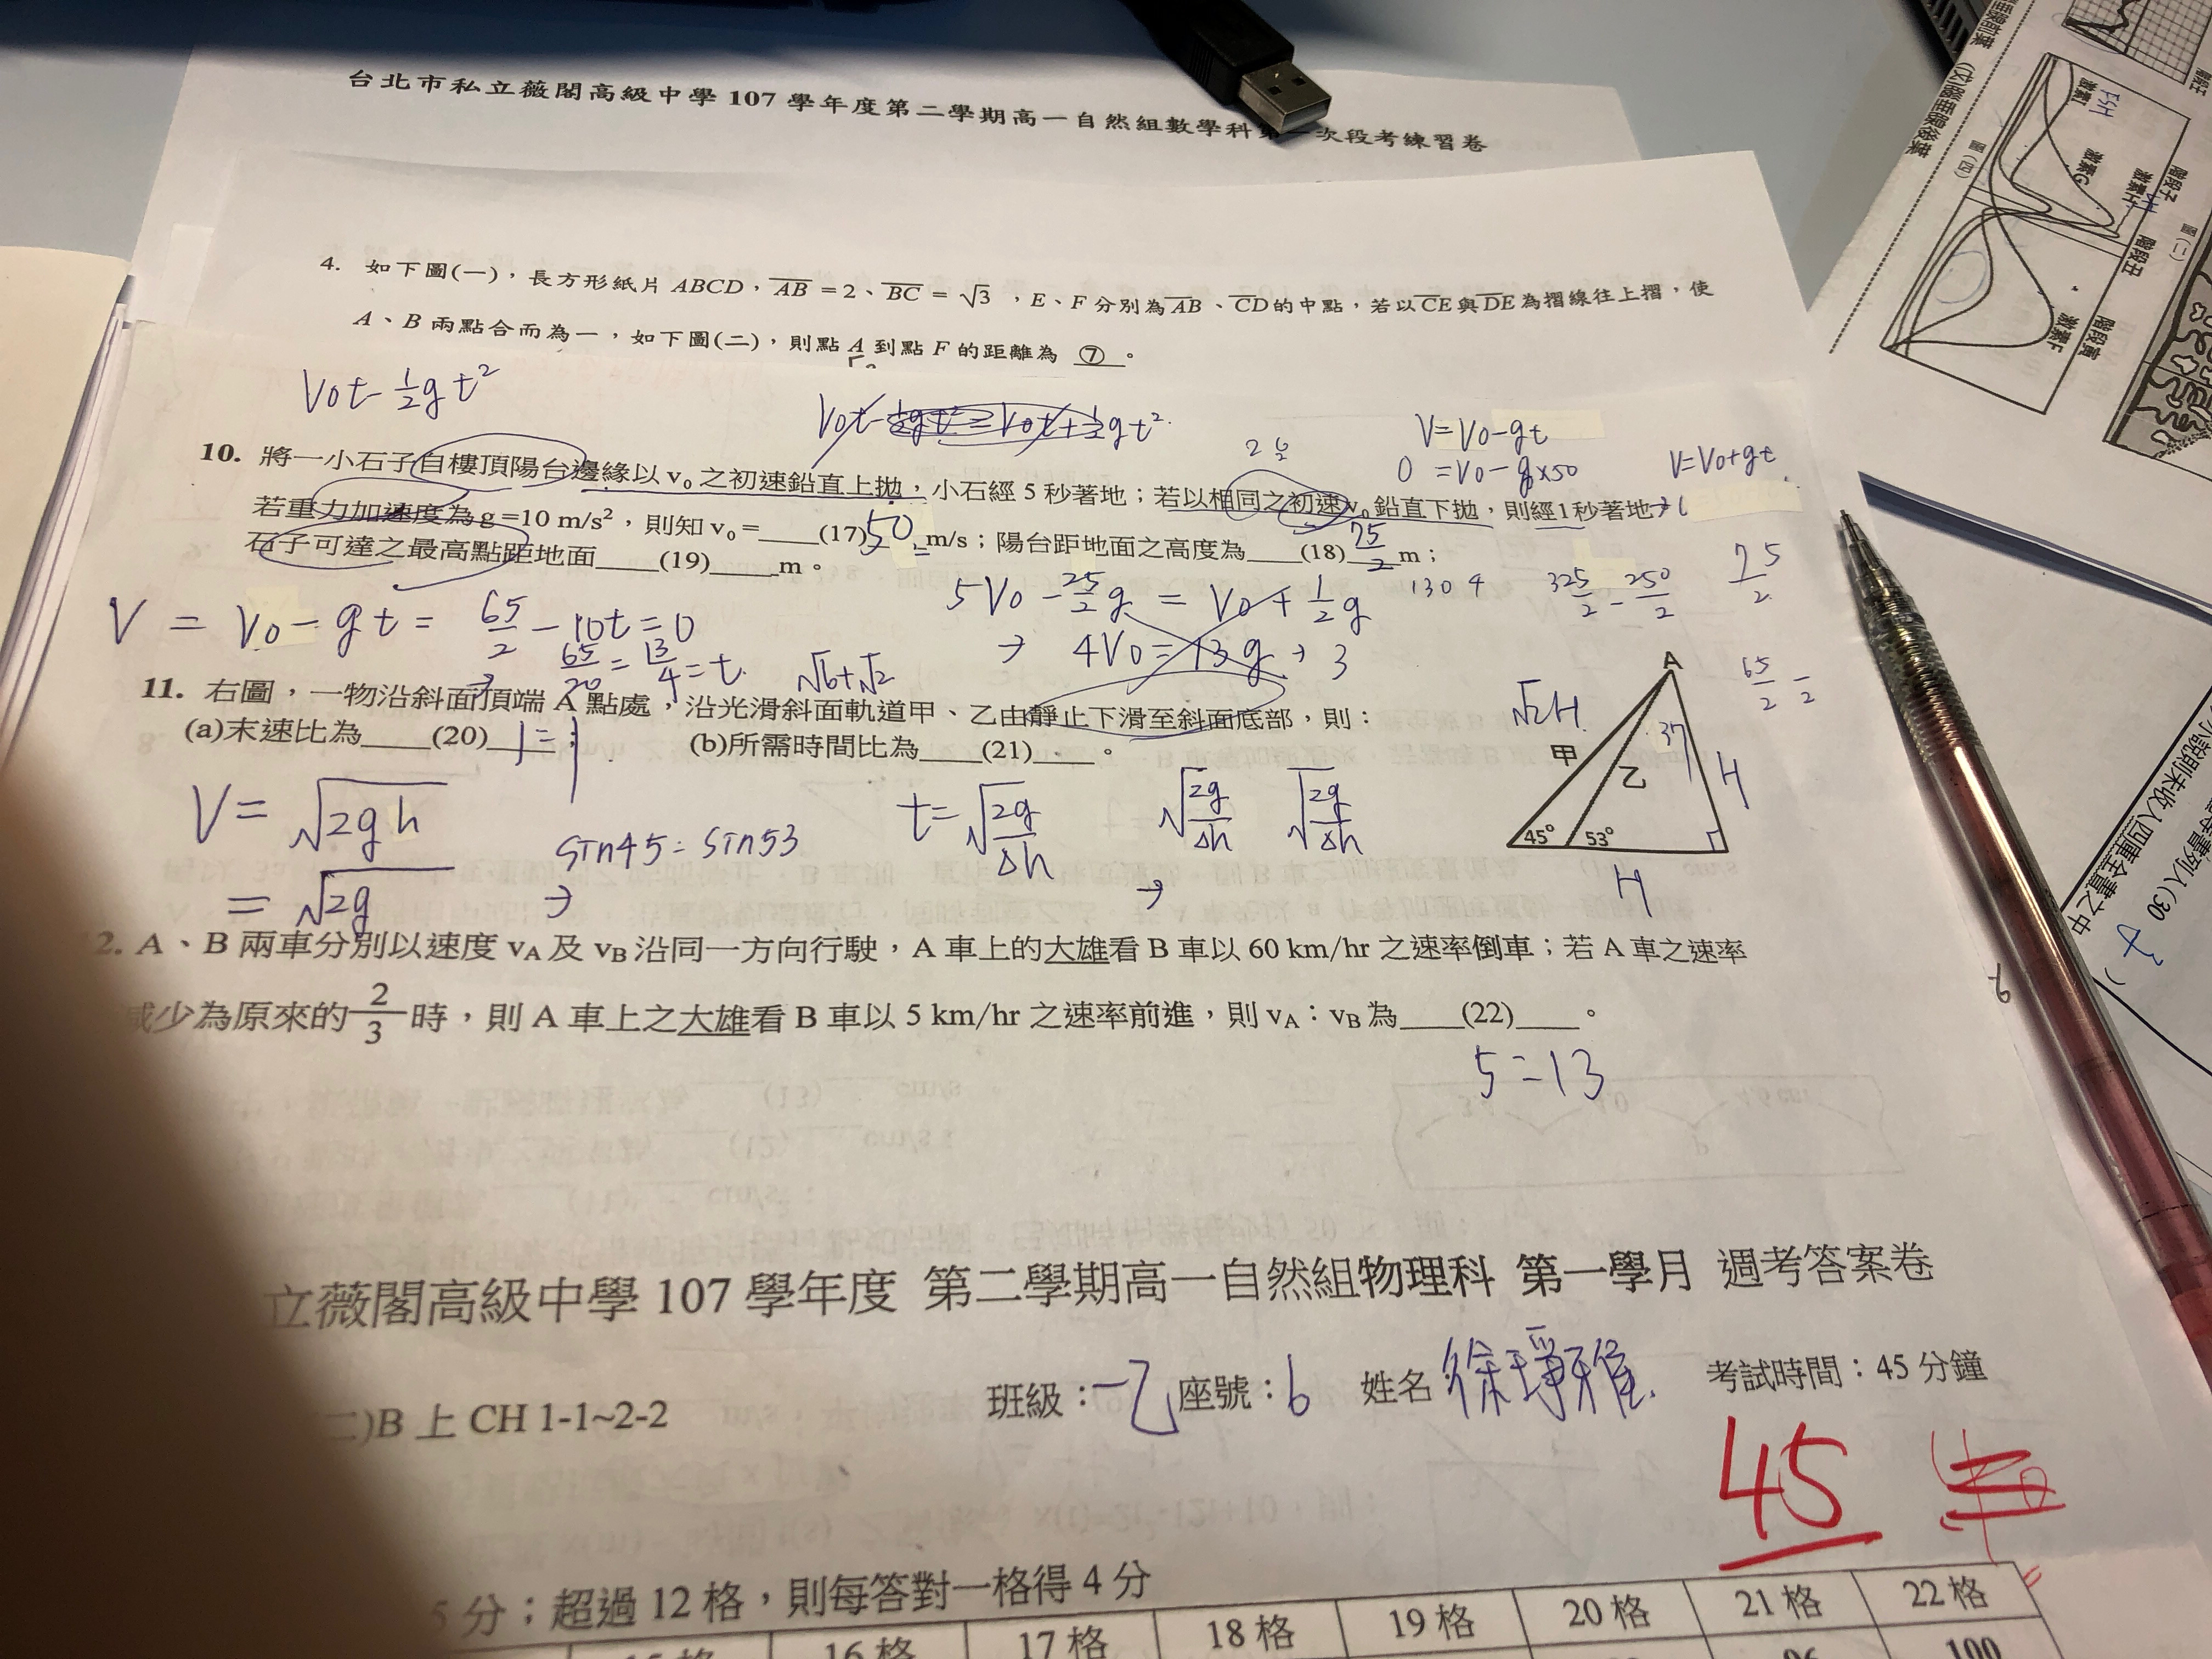 台北市私立薇閣高級中學 107 學年度第二學期高一自然組數學科第一次段考練習卷
4. 如下圖(一)，長方形紙片 ABCD，AB = 2、BC = √3，E、F 分別為AB、CD的中點，若以CE與DE為摺線往上摺，使
A、B 兩點合而為一，如下圖(二)，則點 A 到點 F 的距離為 ⑦ 。
V0t - 1/2 g t²
V=V0-gt
0 = V0 - g×50
V=V0+gt
10. 將一小石子自樓頂陽台邊緣以 v₀ 之初速鉛直上拋，小石經 5 秒著地；若以相同之初速 v₀ 鉛直下拋，則經1秒著地，
若重力加速度為 g =10 m/s²，則知 v₀ =____(17) 50 m/s；陽台距地面之高度為____(18) 75/2 m；
石子可達之最高點距地面____(19)____m。
V = V0 - gt = 65/2 - 10t = 0
65/20 = 13/4 = t
5V0 - 25/2 g = V0 + 1/2 g
→ 4V0 = 13g → 3
130 4
325/2 - 250/2
75/2
65/2
√6+√2
11. 右圖，一物沿斜面頂端 A 點處，沿光滑斜面軌道甲、乙由靜止下滑至斜面底部，則：
(a)末速比為____(20)____ (b)所需時間比為____(21)____。
V = √2gh
= √2g
sin45 = sin53
→
t = √2g/Δh
√2g/Δh √2g/Δh
→
A
√2H
甲
乙
37
H
45° 53°
H
12. A、B 兩車分別以速度 vA 及 vB 沿同一方向行駛，A 車上的大雄看 B 車以 60 km/hr 之速率倒車；若 A 車之速率
減少為原來的 2/3 時，則 A 車上之大雄看 B 車以 5 km/hr 之速率前進，則 vA：vB 為____(22)____。
5=13
立薇閣高級中學 107 學年度 第二學期高一自然組物理科 第一學月 週考答案卷
二)B 上 CH 1-1~2-2 班級：一乙 座號：6 姓名 徐琤雅 考試時間：45 分鐘
45
5 分；超過 12 格，則每答對一格得 4 分
15 格 16 格 17 格 18 格 19 格 20 格 21 格 22 格
96 100
圖(四)
FSH
激素G
激素F
階段丑
階段寅
圖(二)